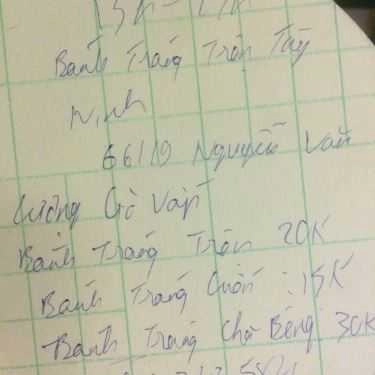 15K - 27K
Bánh Tráng Trộn Tây
Ninh
66/19 Nguyễn Văn
Lượng Gò Vấp
Bánh Tráng Trộn 20K
Bánh Tráng Cuốn : 15K
Bánh Tráng Chà Bông 30K